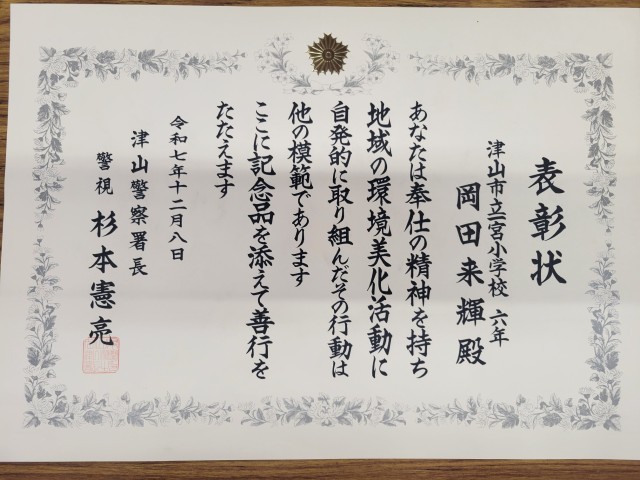 表彰状
津山市立一宮小学校 六年
岡田来輝殿
あなたは奉仕の精神を持ち
地域の環境美化活動に
自発的に取り組んだその行動は
他の模範であります
ここに記念品を添えて善行を
たたえます
令和七年十二月八日
津山警察署長
警視 杉本憲亮